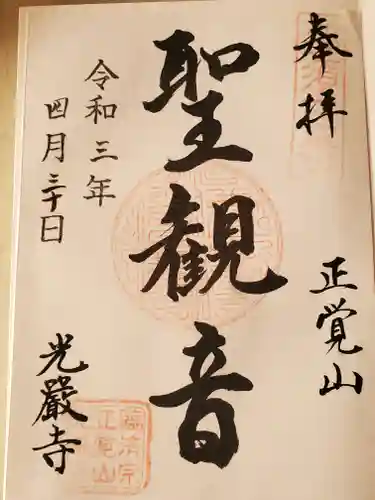 奉拝
正覚山
聖観音
令和三年
四月三十日
光厳寺